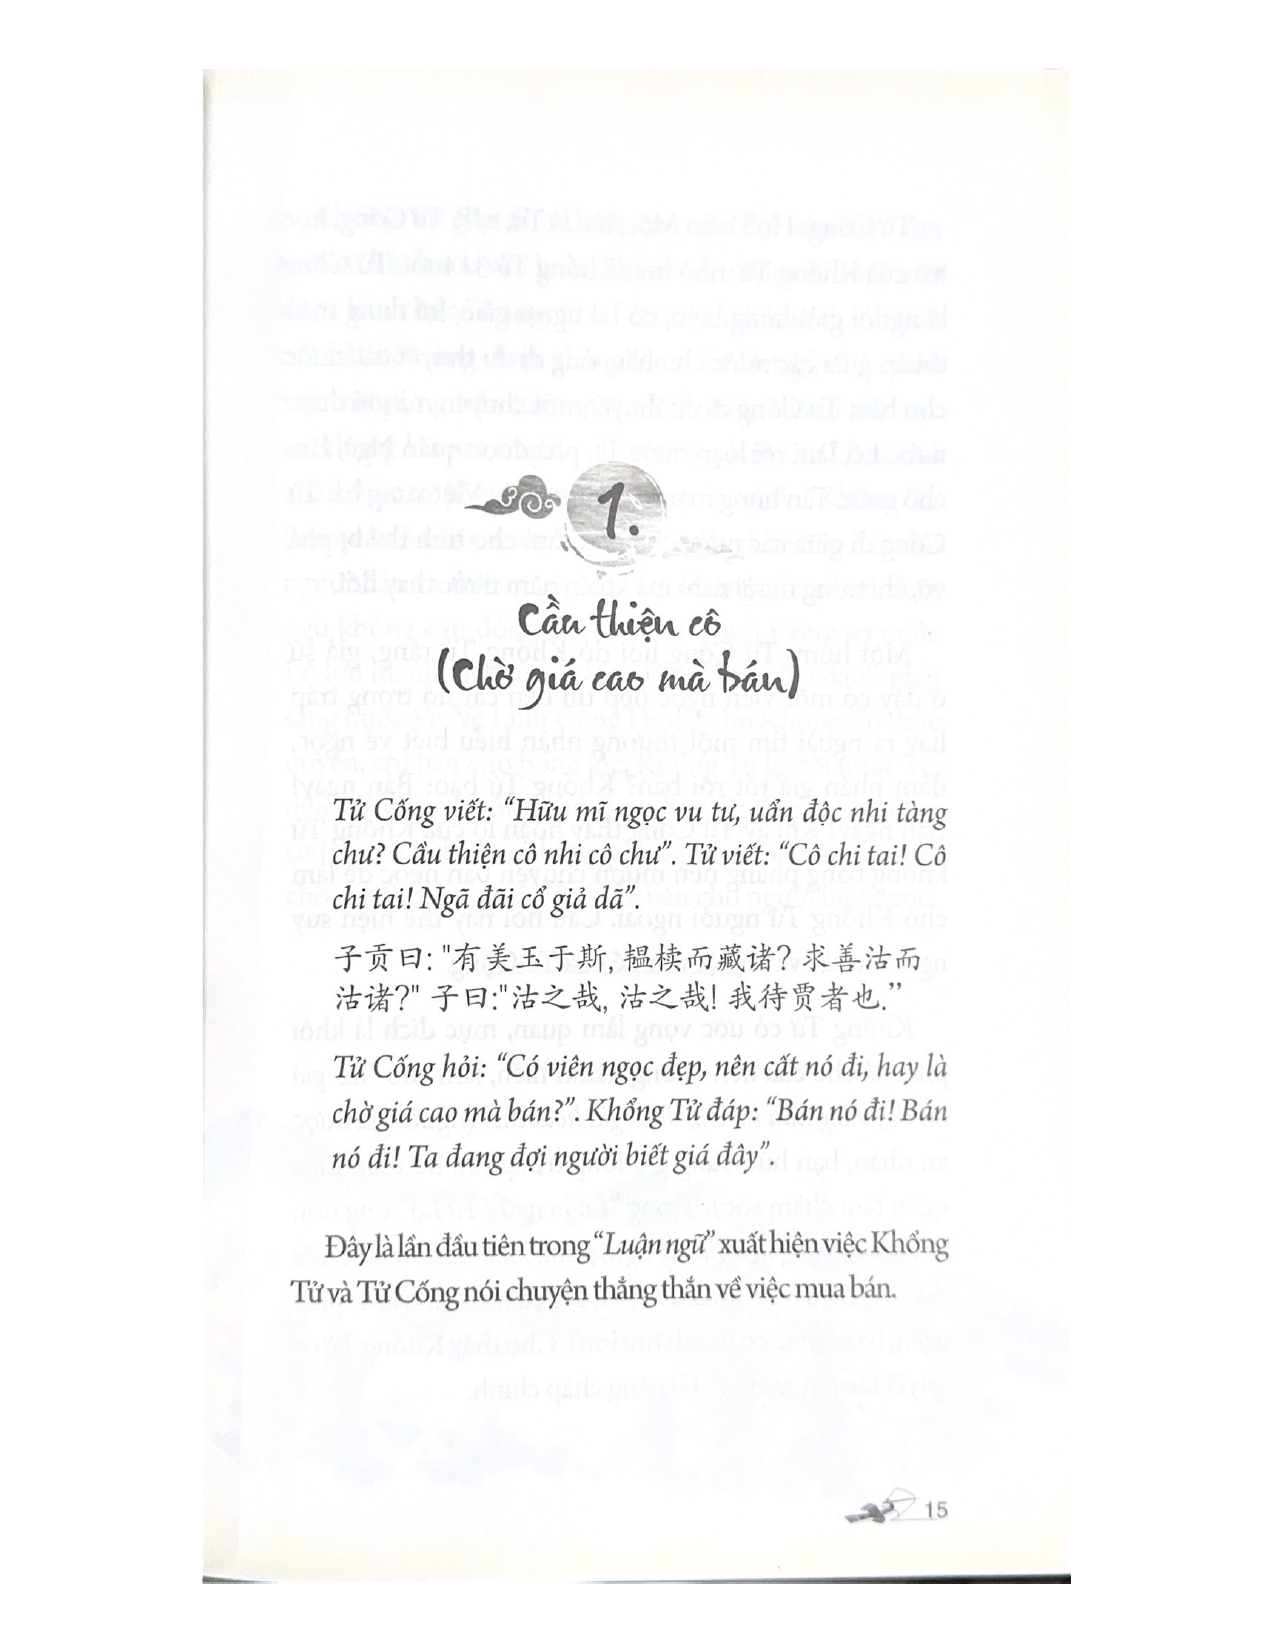 1.
Cầu thiện cô
(Chờ giá cao mà bán)
Tử Cống viết: “Hữu mĩ ngọc vu tư, uẩn độc nhi tàng
chư? Cầu thiện cô nhi cô chư”. Tử viết: “Cô chi tai! Cô
chi tai! Ngã đãi cổ giả dã”.
子贡曰: "有美玉于斯, 韫椟而藏诸? 求善沽而
沽诸?" 子曰:"沽之哉, 沽之哉! 我待贾者也.”
Tử Cống hỏi: “Có viên ngọc đẹp, nên cất nó đi, hay là
chờ giá cao mà bán?”. Khổng Tử đáp: “Bán nó đi! Bán
nó đi! Ta đang đợi người biết giá đây”.
Đây là lần đầu tiên trong “Luận ngữ” xuất hiện việc Khổng
Tử và Tử Cống nói chuyện thẳng thắn về việc mua bán.
15